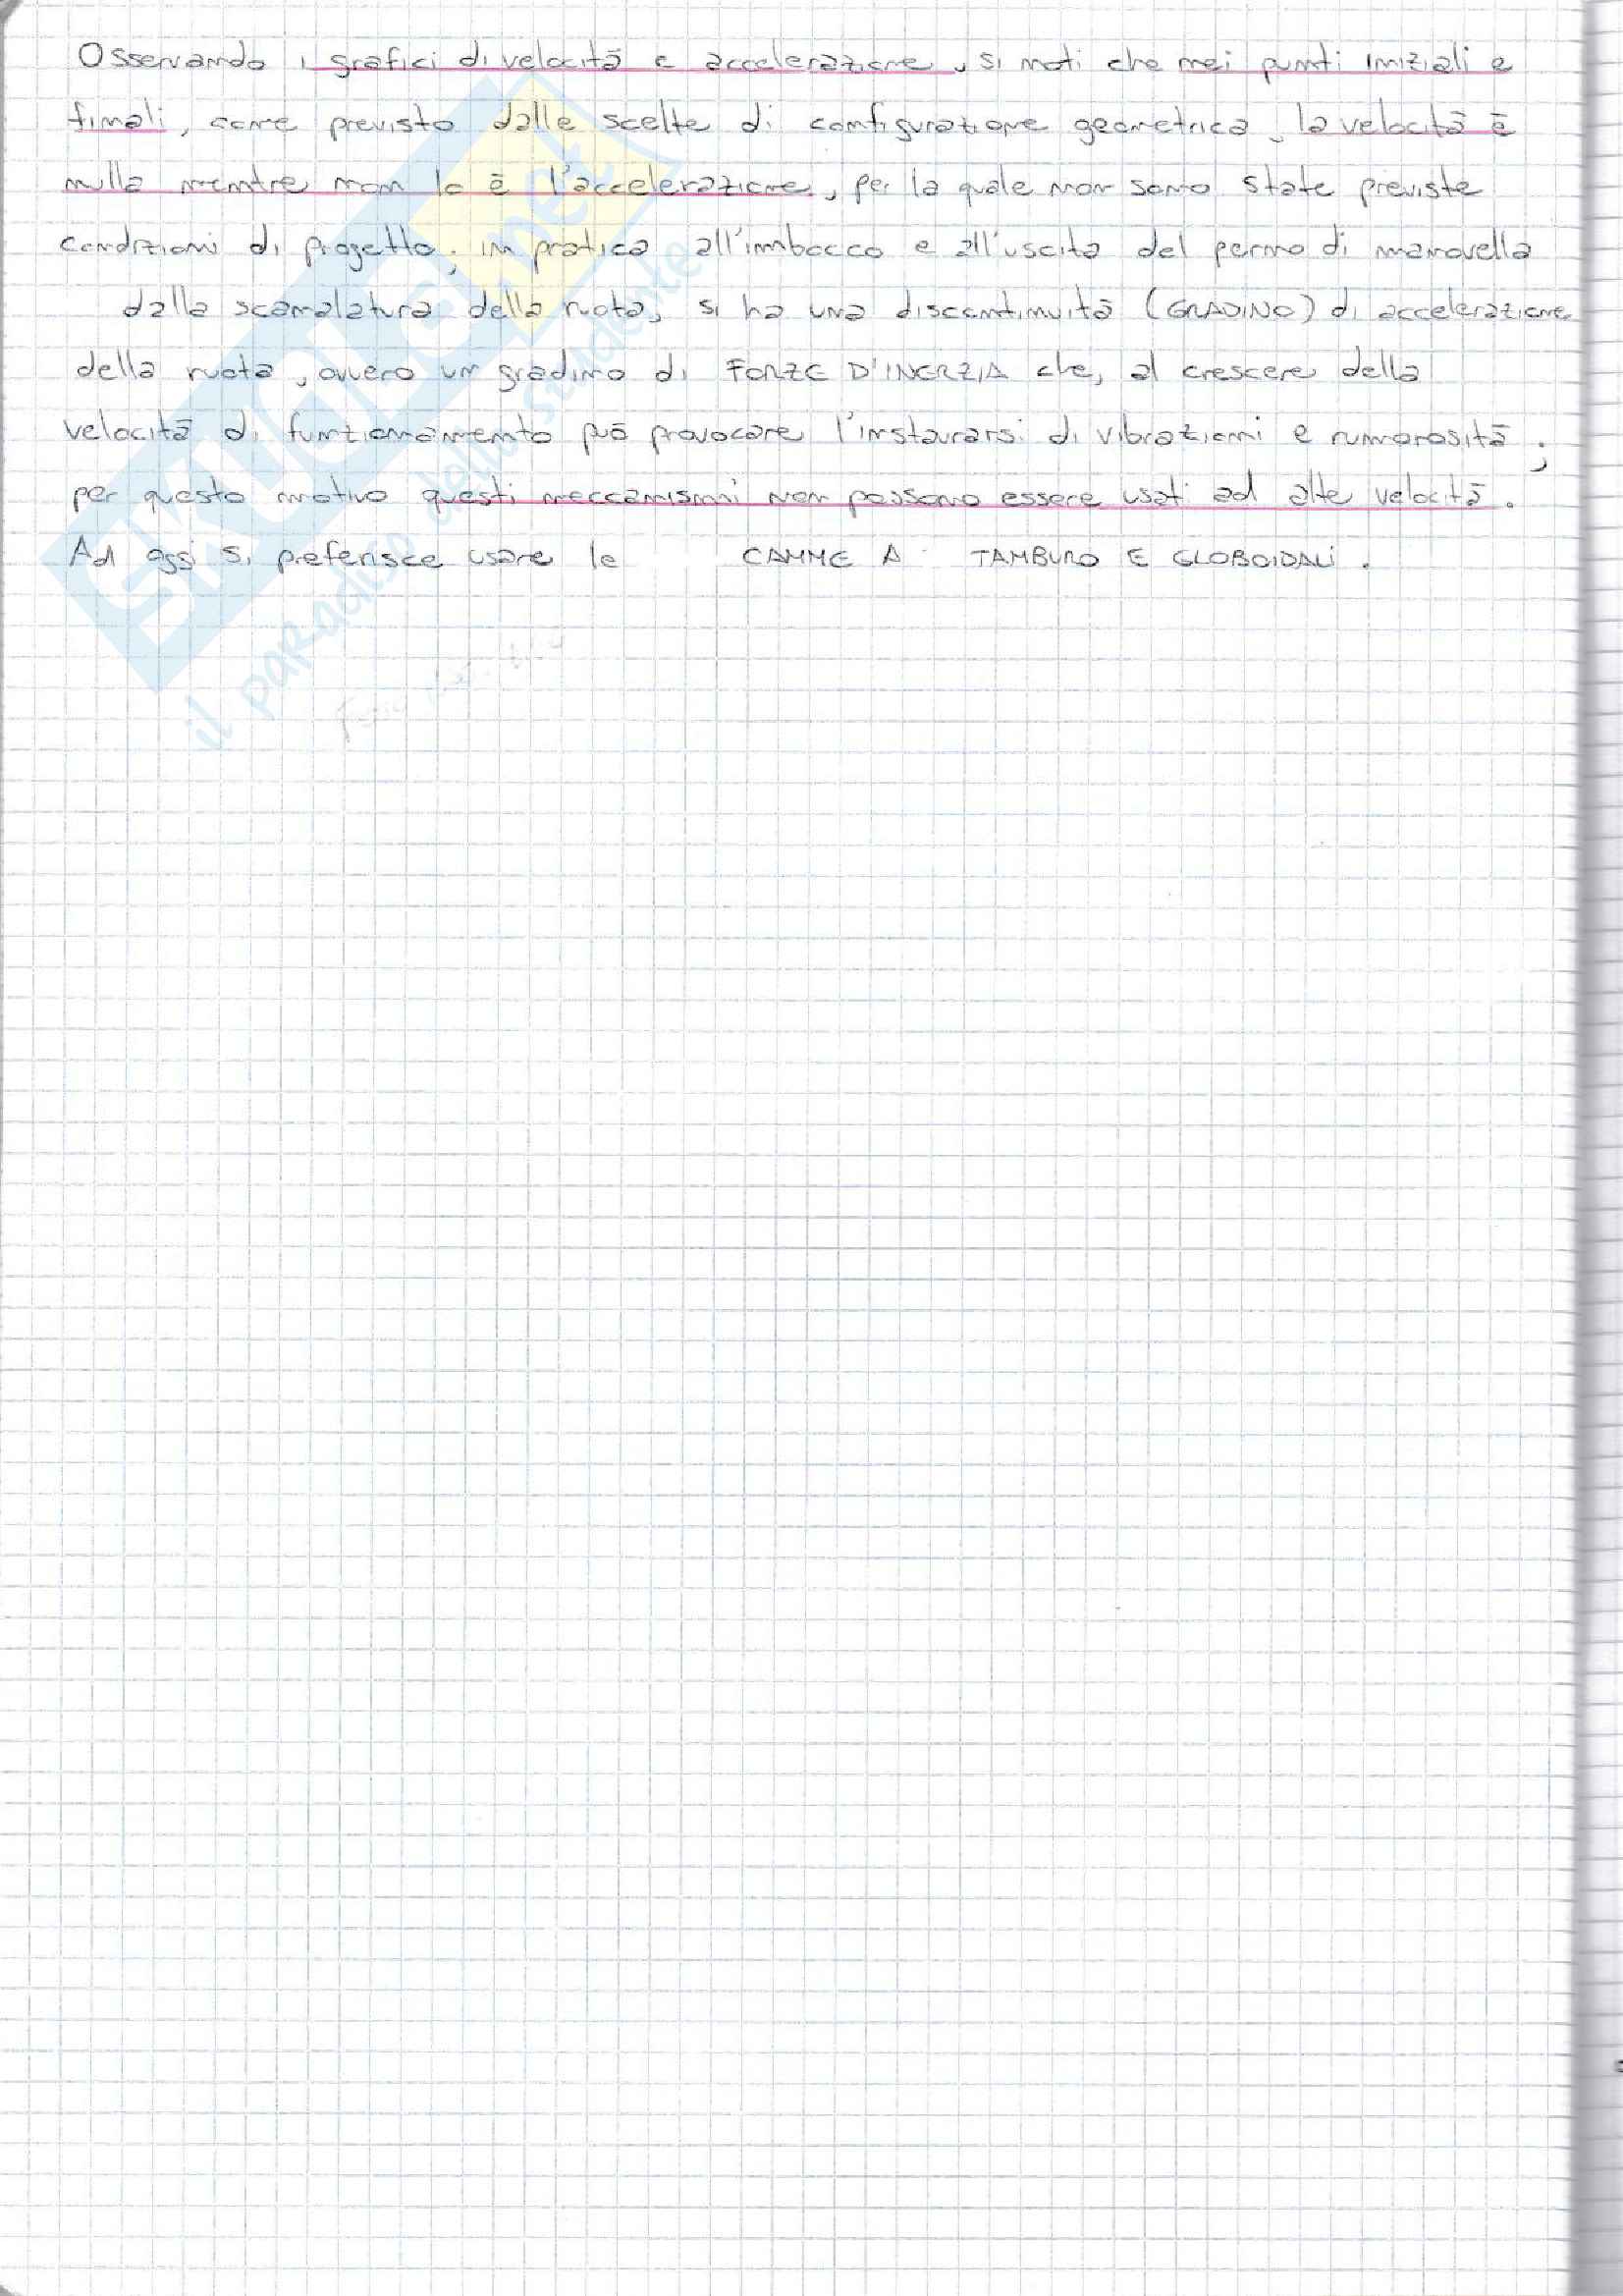 Osservando i grafici di velocità e accelerazione, si noti che nei punti iniziali e
finali, come previsto dalle scelte di configurazione geometrica, la velocità è
nulla mentre non lo è l'accelerazione, per la quale non sono state previste
condizioni di progetto; in pratica all'imbocco e all'uscita del perno di manovella
dalla scanalatura della ruota, si ha una discontinuità (GRADINO) di accelerazione
della ruota, ovvero un gradino di FORZE D'INERZIA che, al crescere della
velocità di funzionamento può provocare l'instaurarsi di vibrazioni e rumorosità;
per questo motivo questi meccanismi non possono essere usati ad alte velocità.
Ad oggi si preferisce usare le CAMME A TAMBURO E GLOBOIDALI.
SKUOLA.net
il paradiso dello studente